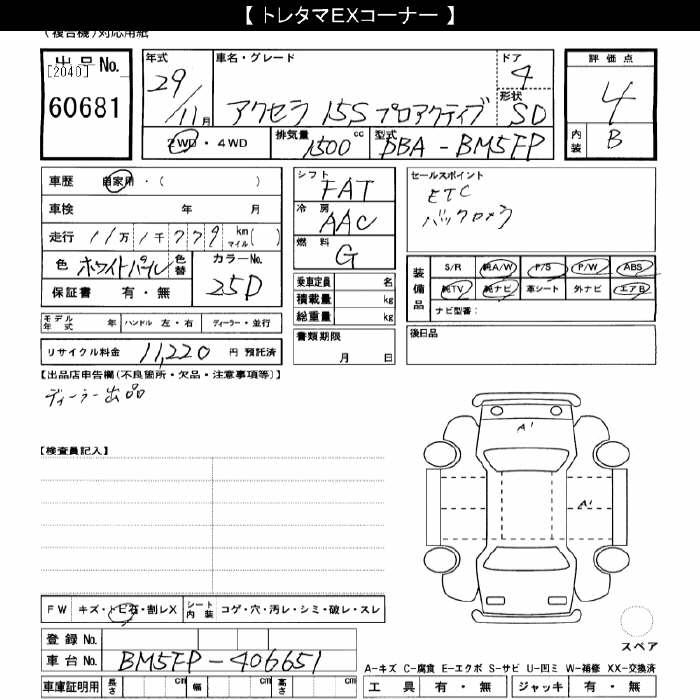 【 トレタマEXコーナー 】
(複合機)対応用紙
出品No.
[2040]
60681
年式
29/11月
車名・グレード
アクセラ 15S プロアクティブ
ドア
4
形状
SD
2WD・4WD
排気量
1500cc
型式
DBA-BM5FP
評価点
4
内装
B
車歴 自家用・( )
車検 年 月
走行 11万1千779 km マイル( )
色 ホワイトパール 色替
カラーNo.
25D
保証書 有・無
シフト
FAT
冷房
AAC
燃料
G
乗車定員 名
積載量 kg
総重量 kg
書類期限
月 日
セールスポイント
ETC
バックカメラ
装備品
S/R 純A/W P/S P/W ABS
純TV 純ナビ 革シート 外ナビ エアB
ナビ型番:
後日品
モデル年式 年 ハンドル 左・右 ディーラー・並行
リサイクル料金 11,220 円 預託済
【出品店申告欄(不良箇所・欠品・注意事項等)】
ディーラー出品
【検査員記入】
A1
A1
FW キズ・トビ石・割レX
シート内装 コゲ・穴・汚レ・シミ・破レ・スレ
登録No.
車台No. BM5FP-406651
車庫証明用 長さ cm 幅 cm 高さ cm
スペア
A-キズ C-腐食 E-エクボ S-サビ U-凹ミ W-補修 XX-交換済
工具 有・無 ジャッキ 有・無